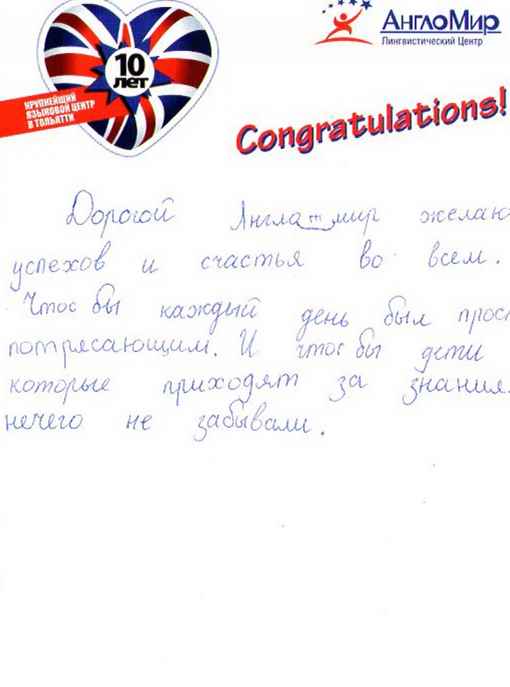 10
лет
КРУПНЕЙШИЙ
ЯЗЫКОВОЙ ЦЕНТР
В ТОЛЬЯТТИ
АнглоМир
Лингвистический Центр
Congratulations!
Дорогой Англа мир желаю
успехов и счастья во всем.
Чтос бы каждый день был прос
потрясающим. И чтос бы дети
которые приходят за знания
нечего не забывали.